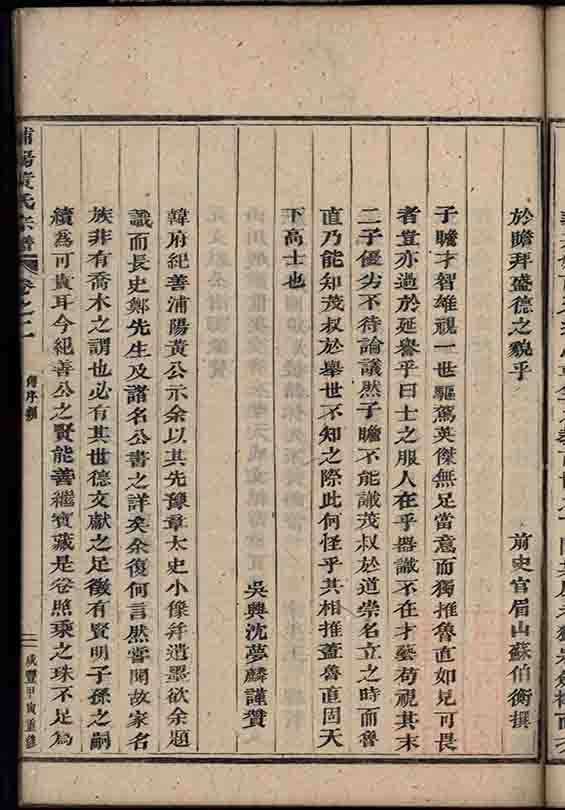 於瞻拜盛德之貌乎
前史官眉山蘇伯衡撰
子瞻才智雄視一世驅駕英傑無足當意而獨推魯直如見可畏
者豈亦過於延譽乎曰士之服人在乎器識不在才藝苟視其末
二子優劣不待論議然子瞻不能識茂叔於道崇名立之時而魯
直乃能知茂叔於舉世不知之際此何怪乎其相推蓋魯直固天
下高士也
吳興沈夢麟謹贊
韓府紀善浦陽黃公示余以其先豫章太史小像并遺墨欲余題
識而長史鄭先生及諸名公書之詳矣余復何言然嘗聞故家名
族非有喬木之謂也必有其世德文獻之足徵有賢明子孫之嗣
續為可貴耳今紀善公之賢能善繼寶藏是卷照乘之珠不足為
浦陽黃氏宗譜
卷之二
傳序類
二
咸豐甲寅重修